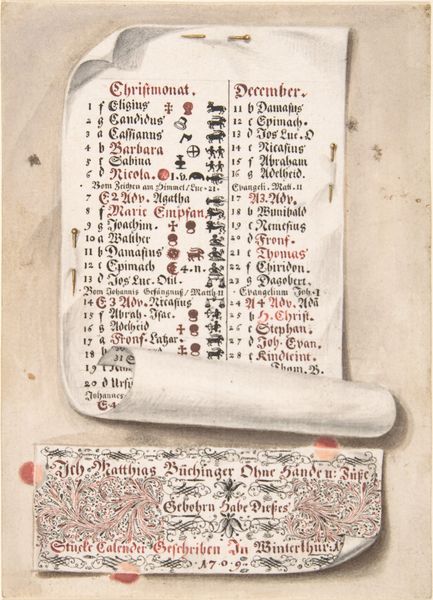 Christmonat.
1 f Eligius
2 g Candidus
3 a Cassianus
4 b Barbara
5 c Sabina
6 d Nicola. 1. v.
Vom Zeichen am Himmel/Luc. 21.
7 E 2 Adv. Agatha
8 f Marie Empfan.
9 g Joachim.
10 a Walther
11 b Damasius
12 c Epimach 4. n.
13 d Jos Luc. Ott.
Vom Johannis Gefängnus/Math 11
14 E 3 Adv. Nicasius
15 f Abrah. Isac.
16 g Adelheid
17 a Fronf. Lazar.
18
31
19
20 d Urs
Johannes
E. 4
December.
11 b Damasius
12 c Epimach.
13 d Jos Luc. O
14 e Nicasius
15 f Abraham
16 g Adelheid.
Evangeli. Mat. 11
17 A 3. Adv.
18 b Wunibald
19 c Nemesius
20 d Fronf.
21 e Thomas
22 f Chiridon.
23 g Dagobert.
Evangelium Joh. 1
24 A 4 Adv. Adā
25 b H. Christ.
26 c Stephan.
27 d Joh. Evan.
28 e Kindleint.
Tham. B.
Ich Matthias Büchinger Ohne Hände u: Füße
Gebohrn Habe Dießes
Stücke Calender Geschriben In Winterthur. A
1709